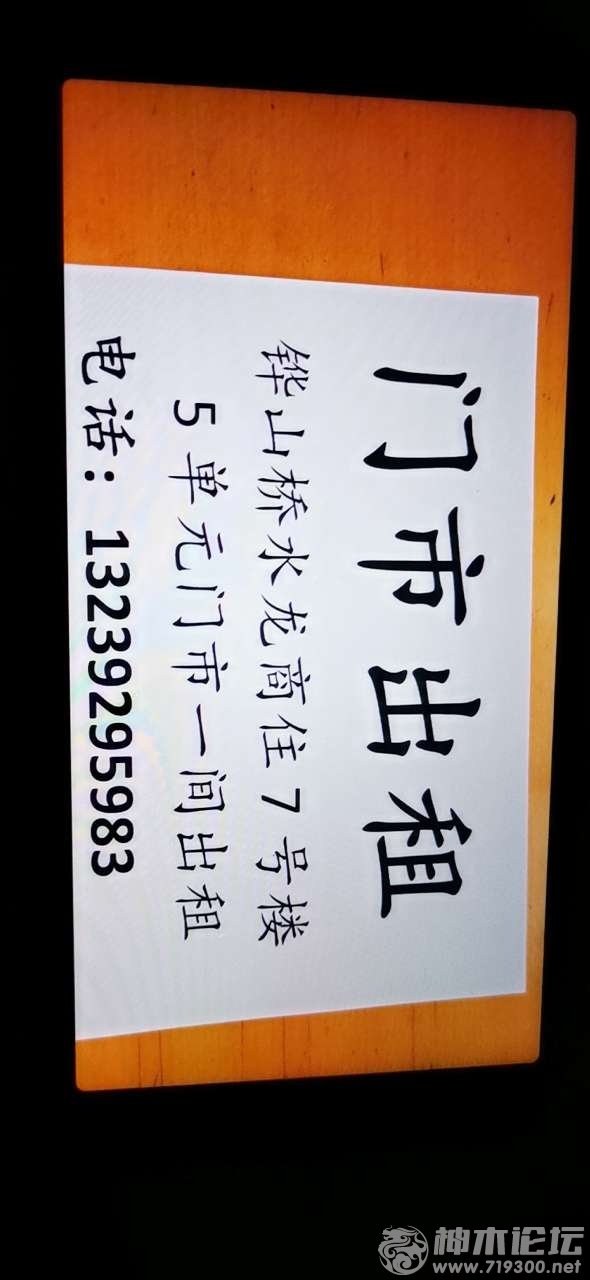 门市出租
铧山桥水龙商住7号楼
5单元门市一间出租
电话：13239295983
神木论坛
www.719300.net